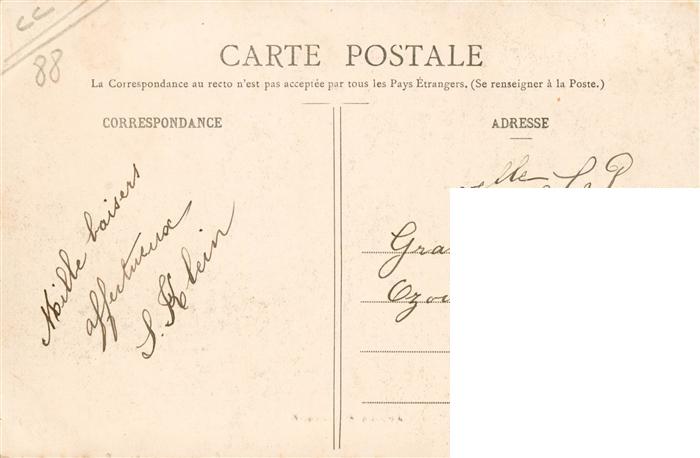 CC
88
CARTE POSTALE
La Correspondance au recto n'est pas acceptée par tous les Pays Étrangers. (Se renseigner à la Poste.)
CORRESPONDANCE
Mille baisers
affectueux
S. Klein
ADRESSE
Mlle